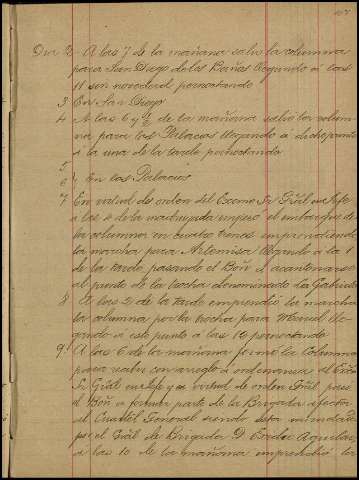 Dia 2 - A las 7 de la mañana salio la columna
para San Diego de los Baños llegando a las
11 sin novedad pernoctando
3 En San Diego
4 A las 6 y 1/2 de la mañana salió la colum
na para los Palacios llegando a
a la una de la tarde pernoctando
5
6 } En los Palacios
7 En virtud de orden del Excmo Sr Gral en Jefe
a las 4 de la madrugada empezó el embarque de
la columna en cuatro trenes emprendiendo
la marcha para Artemisa llegando a la 1
de la tarde pasando el Bon a acantonarse
al punto de la trocha denominado La Gabriela
8 A las 2 de la tarde emprendió la marcha
la columna por la trocha para Mariel lle
gando a este punto a las 10 pernoctando
9 A las 6 de la mañana formó la columna
para con arreglo a ordenanza al Excmo
Sr Gral en Jefe y en virtud de orden Gral pasó
el Bon a formar parte de la Brigada afecta
al Cuartel General siendo esta mandada
por el Gral de Brigada D. Aguilar,
a las 10 de la mañana emprendió la